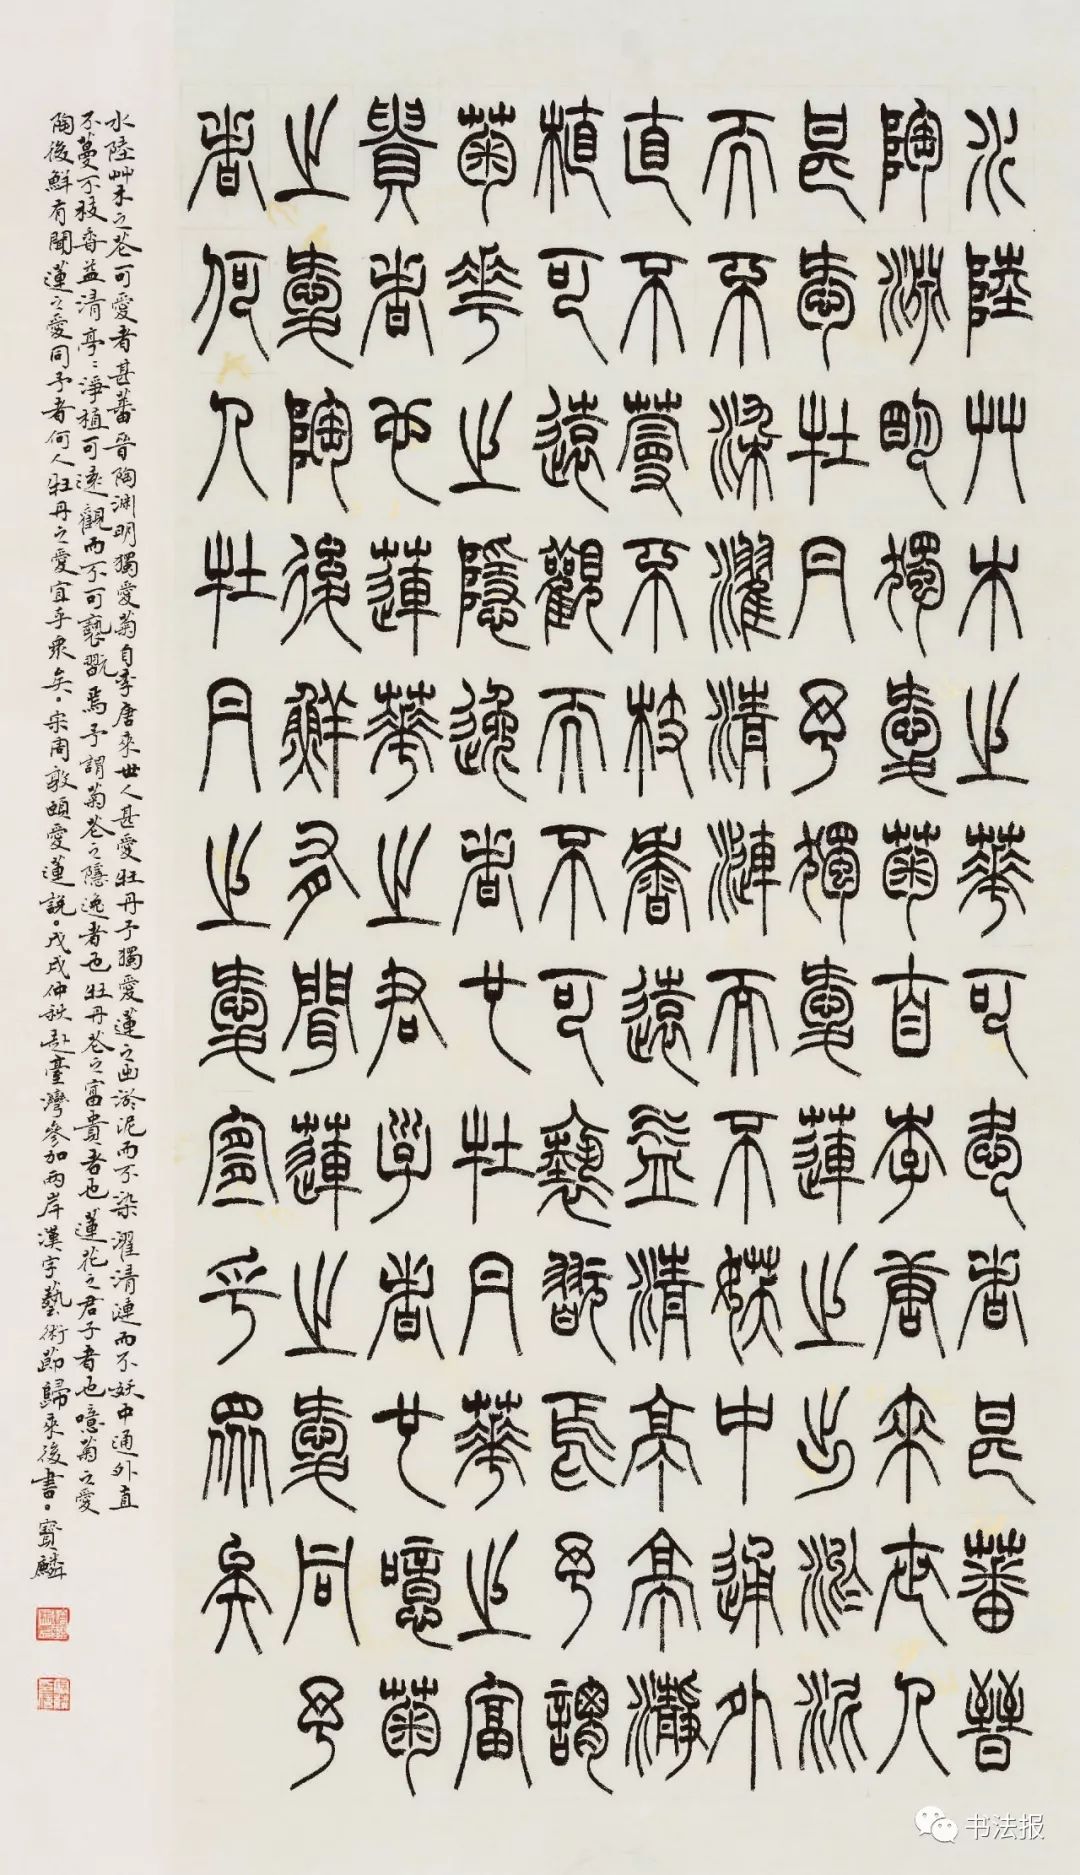 水陸艸木之華可愛者甚蕃晉
陶淵明獨愛菊自李唐來世人
甚愛牡丹予獨愛蓮之出淤泥
而不染濯清漣而不妖中通外
直不蔓不枝香遠益清亭亭瀞
植可遠觀而不可褻翫焉予謂
菊華之隱逸者也牡丹華之富
貴者也蓮華之君子者也噫菊
之愛陶後鮮有聞蓮之愛同予
者何人牡丹之愛宜乎眾矣
水陸艸木之花可愛者甚蕃晉陶淵明獨愛菊自李唐來世人甚愛牡丹予獨愛蓮之出淤泥而不染濯清漣而不妖中通外直
不蔓不枝香益清亭〻淨植可遠觀而不可褻翫焉予謂菊花之隱逸者也牡丹花之富貴者也蓮花之君子者也噫菊之愛
陶後鮮有聞蓮之愛同予者何人牡丹之愛宜乎衆矣。宋周敦頤愛蓮說。戊戌仲秋赴臺灣參加兩岸漢字藝術節歸來後書。寶麟
书法报